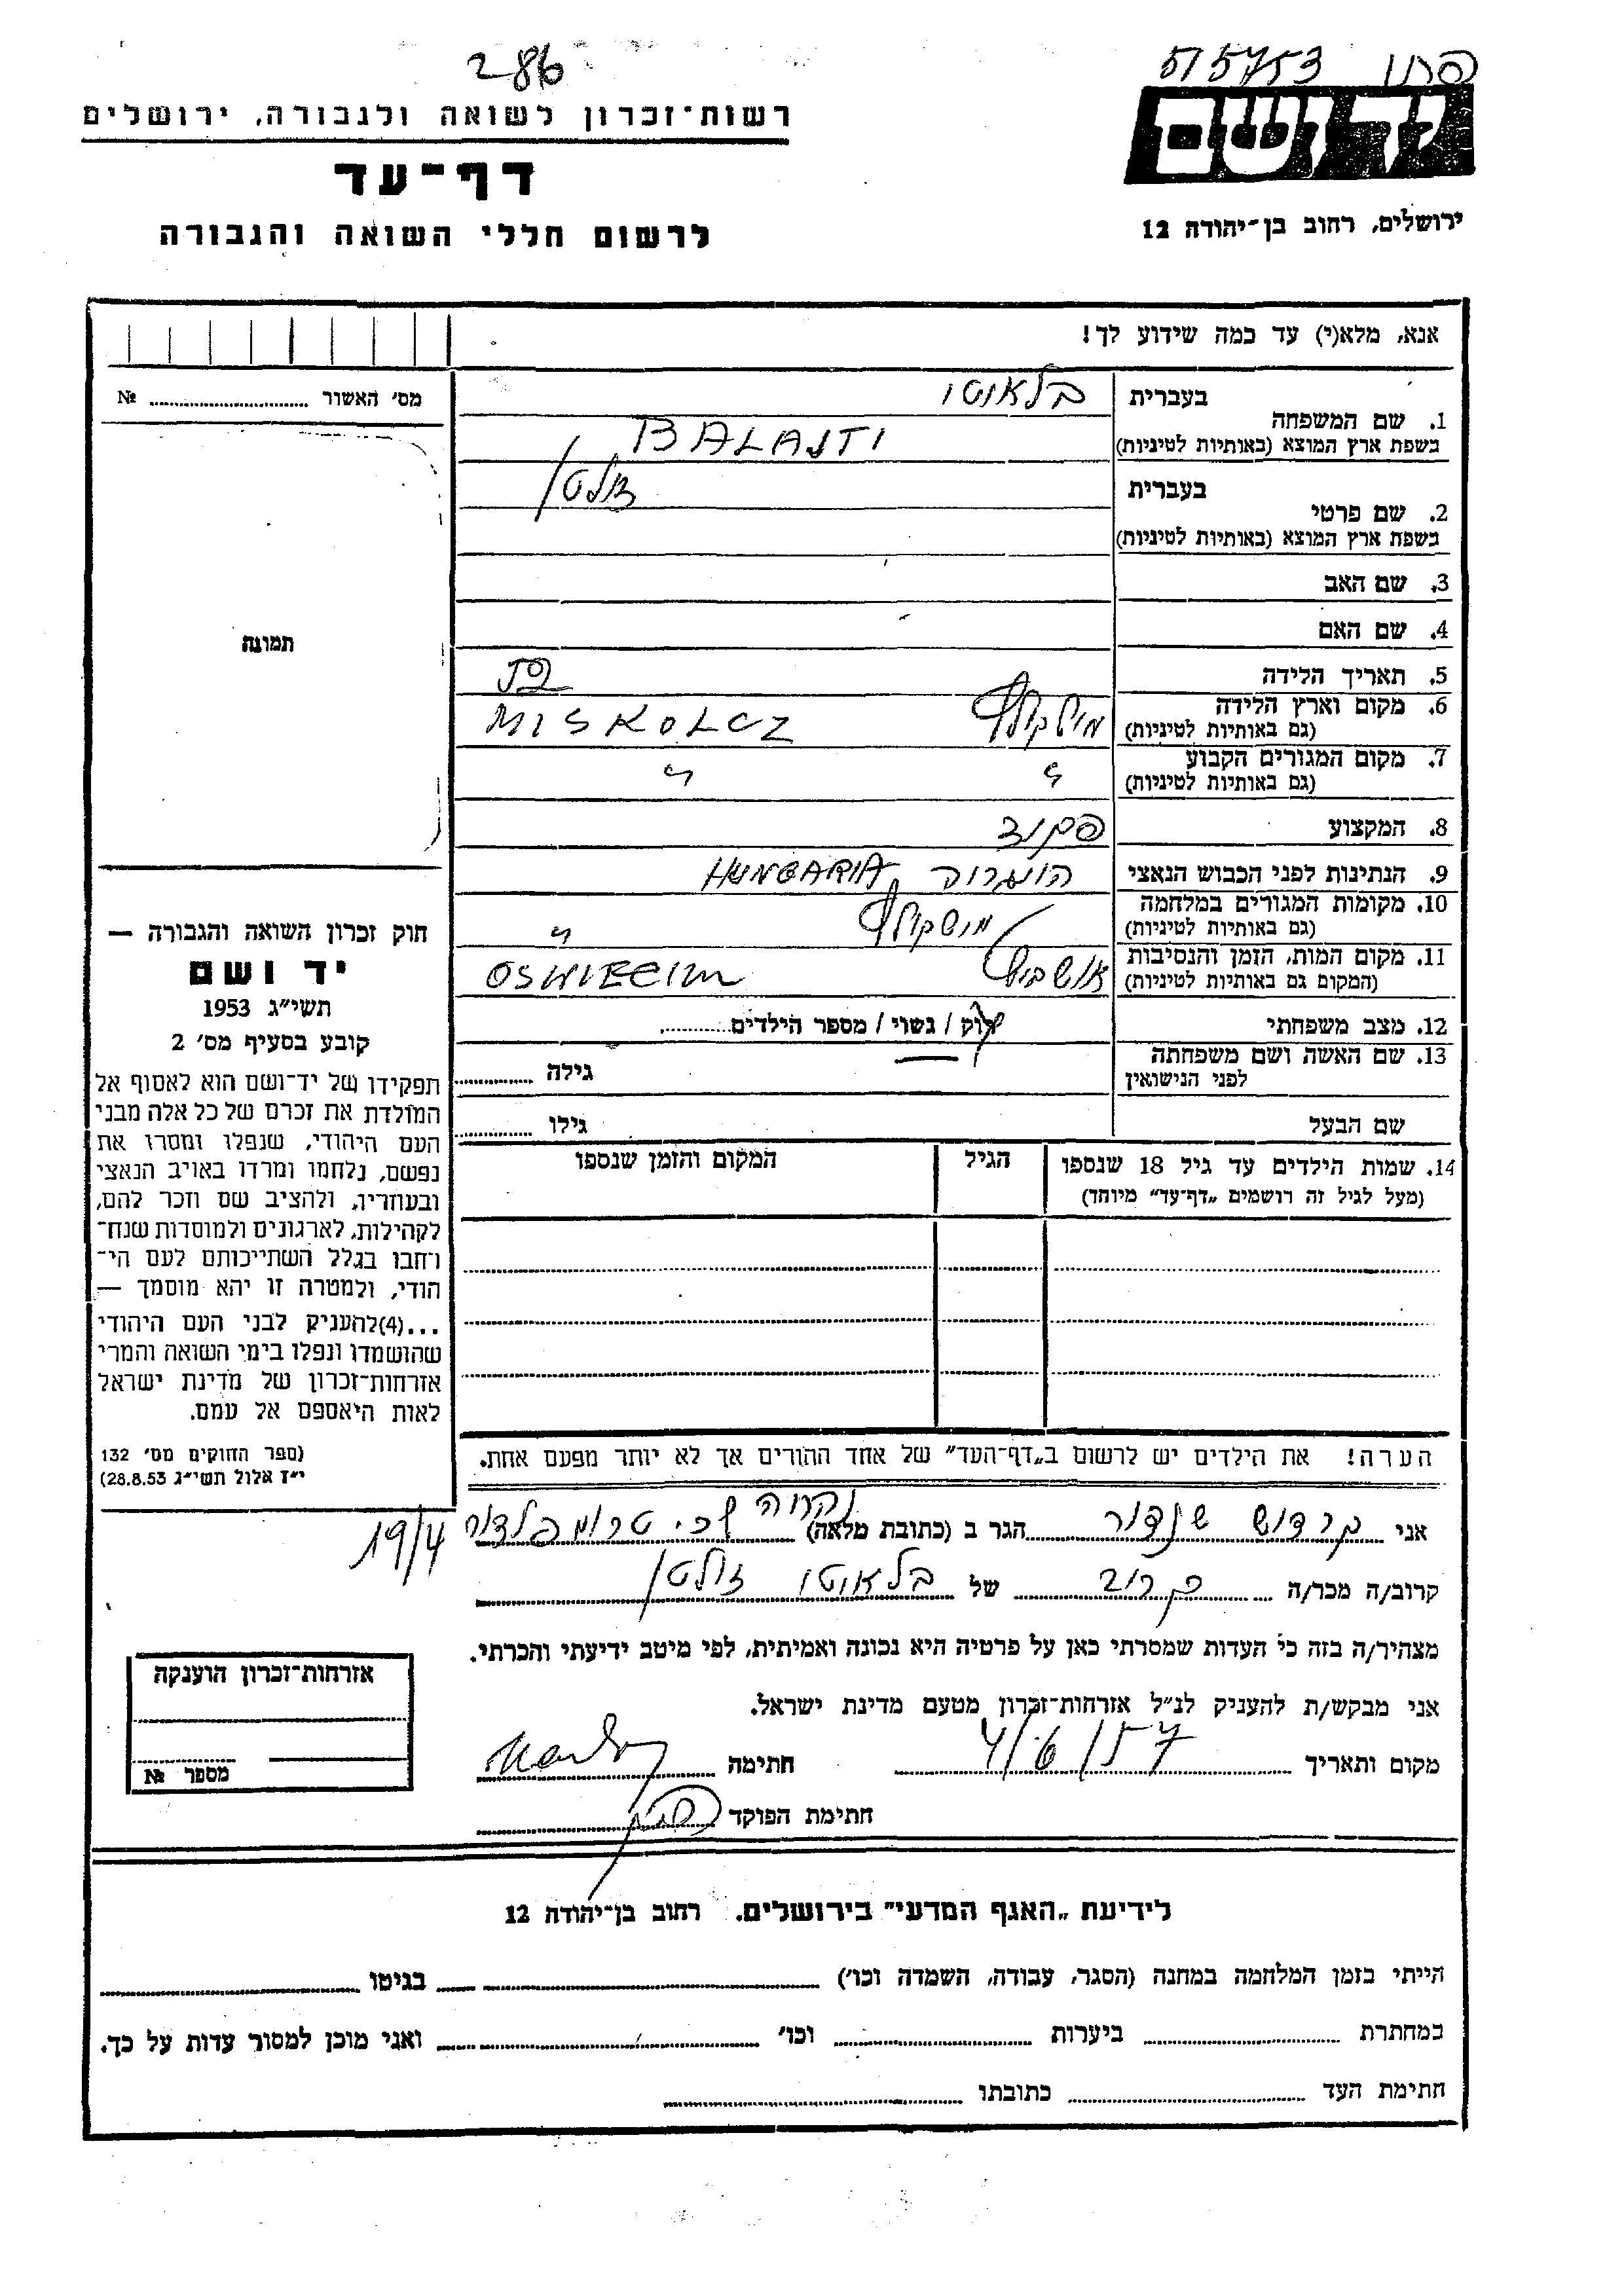 286
515753
רשות־זכרון לשואה ולגבורה, ירושלים
יד ושם
דף־עד
לרשום חללי השואה והגבורה
ירושלים, רחוב בן־יהודה 12
אנא, מלא(י) עד כמה שידוע לך!
מס׳ האשור № 
תמונה
1. שם המשפחה בעברית בלאוטו
בשפת ארץ המוצא (באותיות לטיניות) BALAJTI
2. שם פרטי בעברית זולטן
בשפת ארץ המוצא (באותיות לטיניות)
3. שם האב
4. שם האם
5. תאריך הלידה 52
6. מקום וארץ הלידה
(גם באותיות לטיניות) MISKOLCZ
7. מקום המגורים הקבוע
(גם באותיות לטיניות) " "
8. המקצוע פקיד
9. הנתינות לפני הכבוש הנאצי הונגריה HUNGARIA
10. מקומות המגורים במלחמה
(גם באותיות לטיניות) מישקולץ "
11. מקום המות, הזמן והנסיבות
(המקום גם באותיות לטיניות) אושביץ OSWIECIM
12. מצב משפחתי רוק / נשוי / מספר הילדים
13. שם האשה ושם משפחתה
לפני הנישואין גילה
שם הבעל גילו
14. שמות הילדים עד גיל 18 שנספו הגיל המקום והזמן שנספו
(מעל לגיל זה רושמים „דף־עד״ מיוחד)
הערה! את הילדים יש לרשום ב„דף־העד״ של אחד ההורים אך לא יותר מפעם אחת.
חוק זכרון השואה והגבורה —
יד ושם
תשי״ג 1953
קובע בסעיף מס׳ 2
תפקידו של יד־ושם הוא לאסוף אל
המולדת את זכרם של כל אלה מבני
העם היהודי, שנפלו ומסרו את
נפשם, נלחמו ומרדו באויב הנאצי
ובעוזריו, ולהציב שם וזכר להם,
לקהילות, לארגונים ולמוסדות שנח־
רחבו בגלל השתייכותם לעם הי־
הודי, ולמטרה זו יהא מוסמך —
...(4)להעניק לבני העם היהודי
שהושמדו ונפלו בימי השואה והמרי
אזרחות־זכרון של מדינת ישראל
לאות היאספם אל עמם.
(ספר החוקים מס׳ 132
י״ז אלול תשי״ג 28.8.53)
אני קרדוש שנדור הגר ב (כתובת מלאה) טרומפלדור 19/4
קרוב/ה מכר/ה קרוב של בלאוטו זולטן
מצהיר/ה בזה כי העדות שמסרתי כאן על פרטיה היא נכונה ואמיתית, לפי מיטב ידיעתי והכרתי.
אני מבקש/ת להעניק לנ״ל אזרחות־זכרון מטעם מדינת ישראל.
מקום ותאריך 4/6/57 חתימה
חתימת הפוקד
אזרחות־זכרון הוענקה
מספר №
לידיעת „האגף המדעי״ בירושלים. רחוב בן־יהודה 12
הייתי בזמן המלחמה במחנה (הסגר, עבודה, השמדה וכו׳) בגיטו
במחתרת ביערות וכו׳ ואני מוכן למסור עדות על כך.
חתימת העד כתובתו